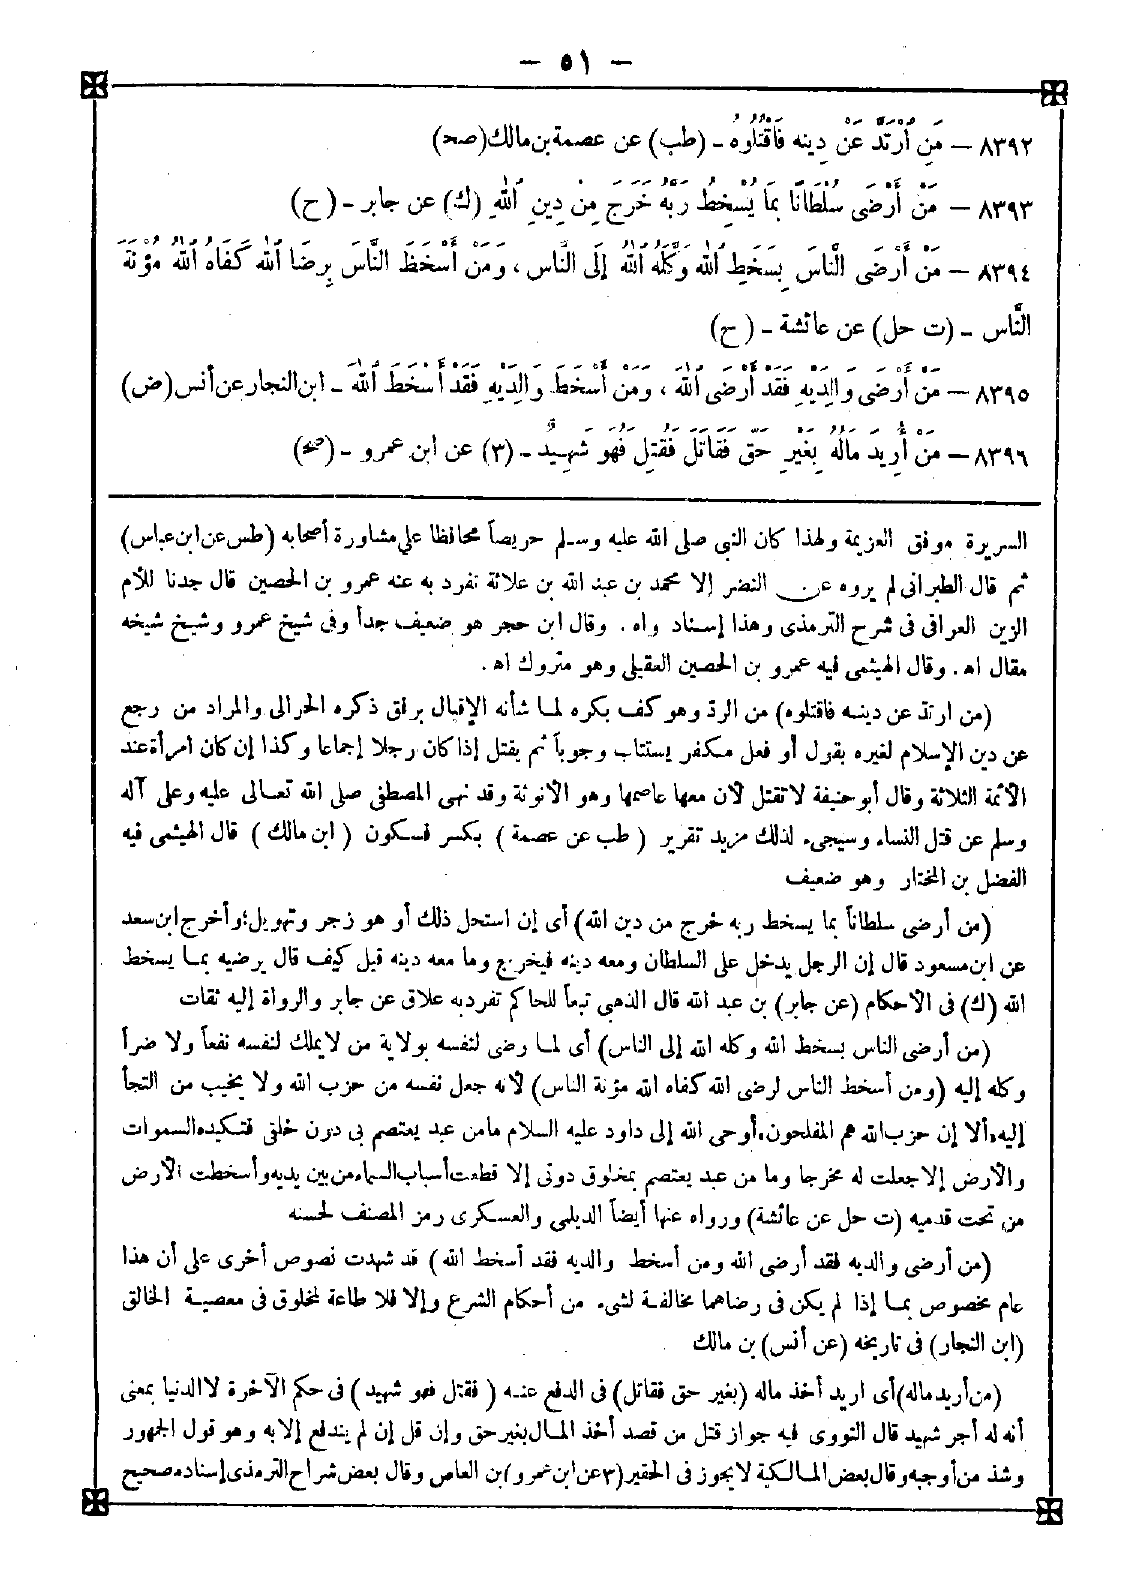 — ٥١ —
٨٣٩٢ — مَنِ ٱرْتَدَّ عَنْ دِينِهِ فَاقْتُلُوهُ - (طب) عن عصمة بن مالك (صح)
٨٣٩٣ — مَنْ أَرْضَى سُلْطَانًا بِمَا يُسْخِطُ رَبَّهُ خَرَجَ مِنْ دِينِ ٱللهِ (ك) عن جابر - (ح)
٨٣٩٤ — مَنْ أَرْضَى النَّاسَ بِسَخَطِ ٱللهِ وَكَلَهُ ٱللهُ إِلَى النَّاسِ ، وَمَنْ أَسْخَطَ النَّاسَ بِرِضَا ٱللهِ كَفَاهُ ٱللهُ مُؤْنَةَ
النَّاسِ - (ت حل) عن عائشة - (ح)
٨٣٩٥ — مَنْ أَرْضَى وَالِدَيْهِ فَقَدْ أَرْضَى ٱللهَ ، وَمَنْ أَسْخَطَ وَالِدَيْهِ فَقَدْ أَسْخَطَ ٱللهَ - ابن النجار عن أنس (ض)
٨٣٩٦ — مَنْ أُرِيدَ مَالُهُ بِغَيْرِ حَقٍّ فَقَاتَلَ فَقُتِلَ فَهُوَ شَهِيدٌ - (٣) عن ابن عمرو - (صح)
السريرة موفق العزيمة ولهذا كان النبي صلى الله عليه وسلم حريصاً محافظا على مشاورة أصحابه (طس عن ابن عباس)
ثم قال الطبرانى لم يروه عن النضر إلا محمد بن عبد الله بن علاثة تفرد به عنه عمرو بن الحصين قال جدنا للأم
الزين العراقى فى شرح الترمذى وهذا إسناد واه . وقال ابن حجر هو ضعيف جداً وفى شيخ عمرو وشيخ شيخه
مقال اه . وقال الهيثمى فيه عمرو بن الحصين العقيلى وهو متروك اه .
(من ارتد عن دينه فاقتلوه) من الرد وهو كف بكره لما شأنه الإقبال برفق ذكره الحرالى والمراد من رجع
عن دين الإسلام لغيره بقول أو فعل مكفر يستتاب وجوباً ثم يقتل إذا كان رجلا إجماعا وكذا إن كان امرأة عند
الأئمة الثلاثة وقال أبو حنيفة لا تقتل لأن معها عاصمها وهو الأنوثة وقد نهى المصطفى صلى الله تعالى عليه وعلى آله
وسلم عن قتل النساء وسيجىء لذلك مزيد تقرير ( طب عن عصمة ) بكسر فسكون ( ابن مالك ) قال الهيثمى فيه
الفضل بن المختار وهو ضعيف
(من أرضى سلطاناً بما يسخط ربه خرج من دين الله) أى إن استحل ذلك أو هو زجر وتهويل؛ وأخرج ابن سعد
عن ابن مسعود قال إن الرجل يدخل على السلطان ومعه دينه فيخرج وما معه دينه قيل كيف قال يرضيه بما يسخط
الله (ك) فى الأحكام (عن جابر) بن عبد الله قال الذهبى تبعاً للحاكم تفرد به علاق عن جابر والرواة إليه ثقات
(من أرضى الناس بسخط الله وكله الله إلى الناس) أى لما رضى لنفسه بولاية من لا يملك لنفسه نفعاً ولا ضراً
وكله إليه (ومن أسخط الناس لرضى الله كفاه الله مؤنة الناس) لأنه جعل نفسه من حزب الله ولا يخيب من التجأ
إليه، ألا إن حزب الله هم المفلحون، أوحى الله إلى داود عليه السلام ما من عبد يعتصم بى دون خلقى فتكيده السموات
والأرض إلا جعلت له مخرجا وما من عبد يعتصم بمخلوق دونى إلا قطعت أسباب السماء من بين يديه وأسخطت الأرض
من تحت قدميه (ت حل عن عائشة) ورواه عنها أيضاً الديلمى والعسكرى رمز المصنف لحسنه
(من أرضى والديه فقد أرضى الله ومن أسخط والديه فقد أسخط الله) قد شهدت نصوص أخرى على أن هذا
عام مخصوص بما إذا لم يكن فى رضاهما مخالفة لشىء من أحكام الشرع وإلا فلا طاعة لمخلوق فى معصية الخالق
(ابن النجار) فى تاريخه (عن أنس) بن مالك
(من أريد ماله) أى أريد أخذ ماله (بغير حق فقاتل) فى الدفع عنه ( فقتل فهو شهيد ) فى حكم الآخرة لا الدنيا بمعنى
أنه له أجر شهيد قال النووى فيه جواز قتل من قصد أخذ المال بغير حق وإن قل إن لم يندفع إلا به وهو قول الجمهور
وشذ من أوجبه وقال بعض المالكية لا يجوز فى الحقير (٣ عن ابن عمرو) بن العاص وقال بعض شراح الترمذى إسناده صحيح